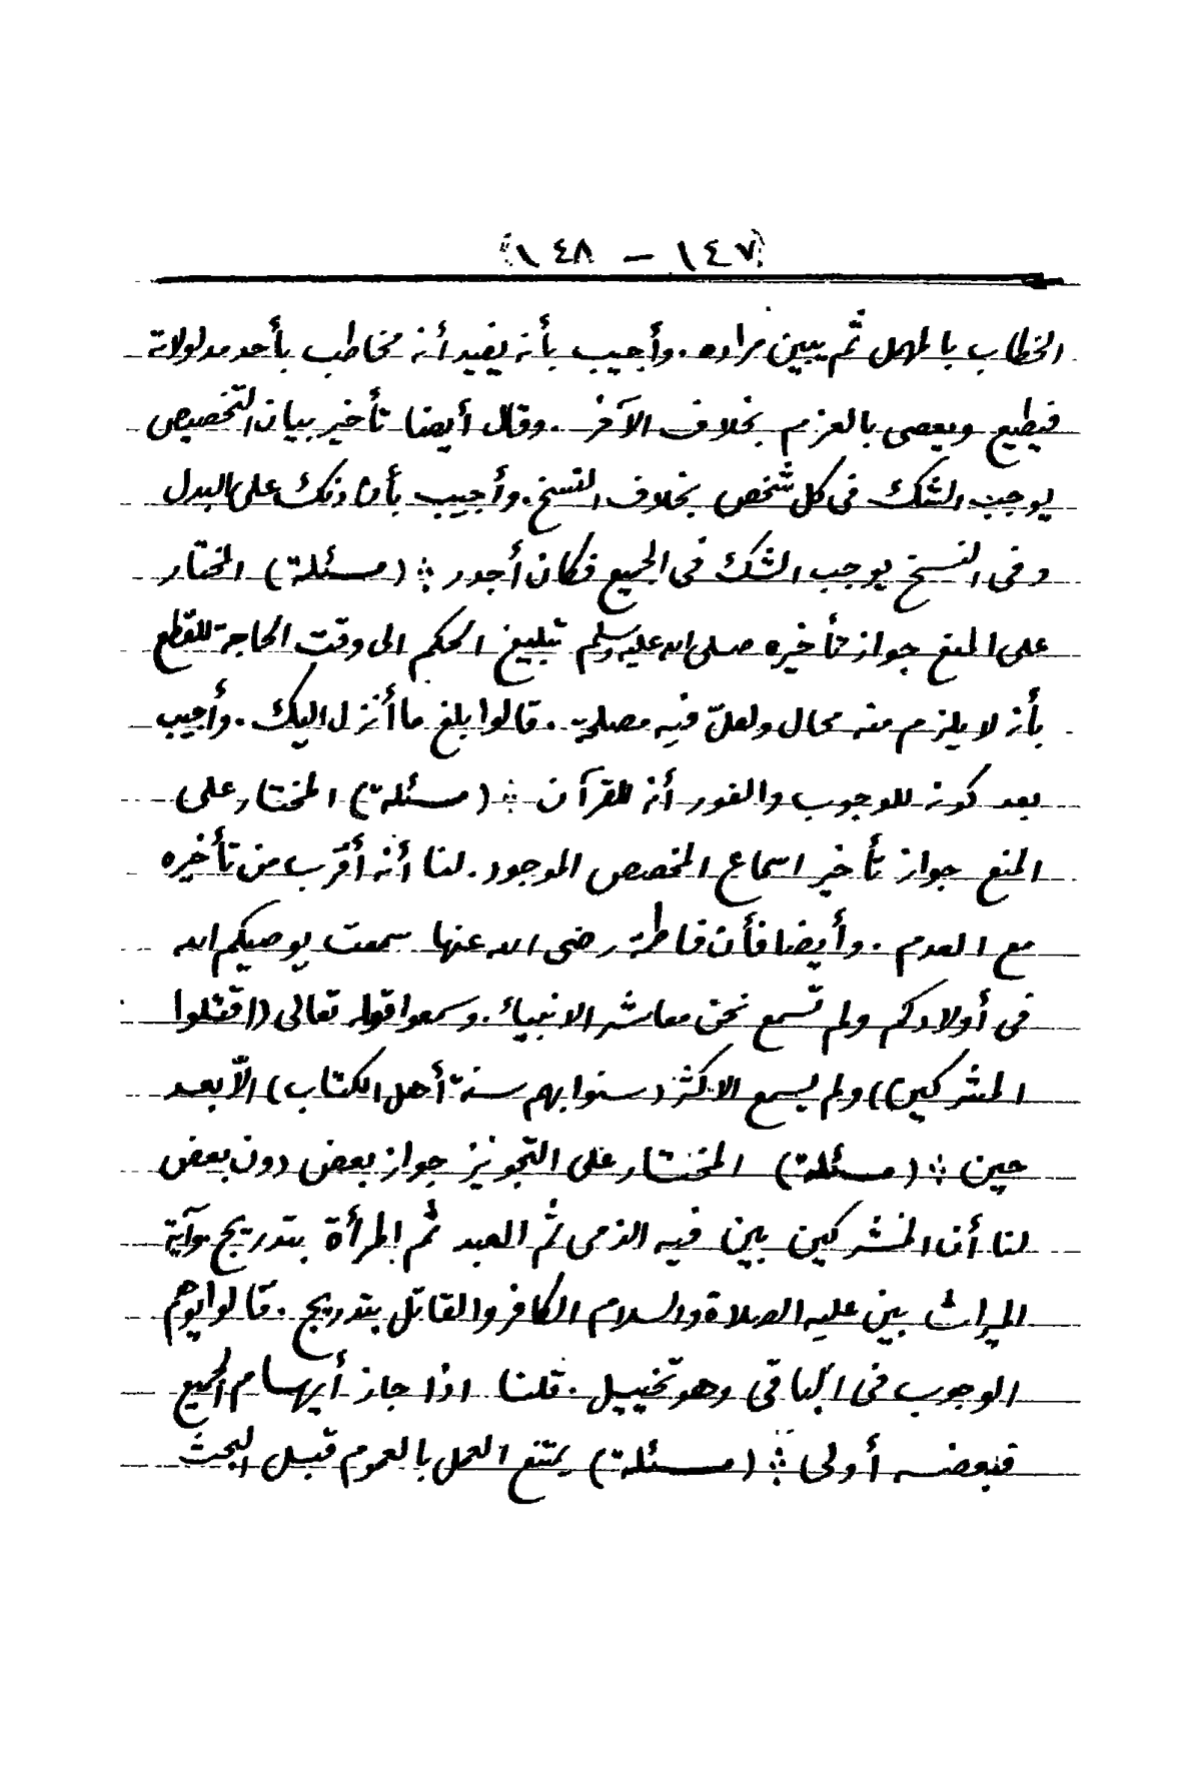 (١٤٧ — ١٤٨)
الخطاب بالمهمل ثم يبين مراده . وأجيب بأنه يفيد أنه مخاطب بأحد مدلولاته
فيطيع ويعصى بالعزم بخلاف الآخر . وقال أيضا تأخير بيان التخصيص
يوجب الشك فى كل شخص بخلاف النسخ . وأجيب بأن ذلك على البدل
وفى النسخ يوجب الشك فى الجميع فكان أجدر ⁘ (مسئلة) المختار
على المنع جواز تأخيره صلى الله عليه وسلم تبليغ الحكم الى وقت الحاجة للقطع
بأنه لا يلزم منه محال ولعلّ فيه مصلحة . قالوا بلغ ما أنزل اليك . وأجيب
بعد كونه للوجوب والفور أنه للقرآن ⁘ (مسئلة) المختار على
المنع جواز تأخير اسماع المخصص الموجود . لنا أنه أقرب من تأخيره
مع العدم . وأيضا فأن فاطمة رضى الله عنها سمعت يوصيكم الله
فى أولادكم ولم تسمع نحن معاشر الانبياء . وسمعوا قوله تعالى (اقتلوا
المشركين) ولم يسمع الاكثر (سنوا بهم سنة أهل الكتاب) الاّ بعد
حين ⁘ (مسئلة) المختار على التجويز جواز بعض دون بعض
لنا أن المشركين بين فيه الذمى ثم العبد ثم المرأة بتدريج وآية
الميراث بين عليه الصلاة والسلام الكافر والقاتل بتدريج . قالوا يوهم
الوجوب فى الباقى وهو تخييل . قلنا اذا جاز أيهام الجميع
فبعضه أولى ⁘ (مسئلة) يمتنع العمل بالعموم قبل البحث